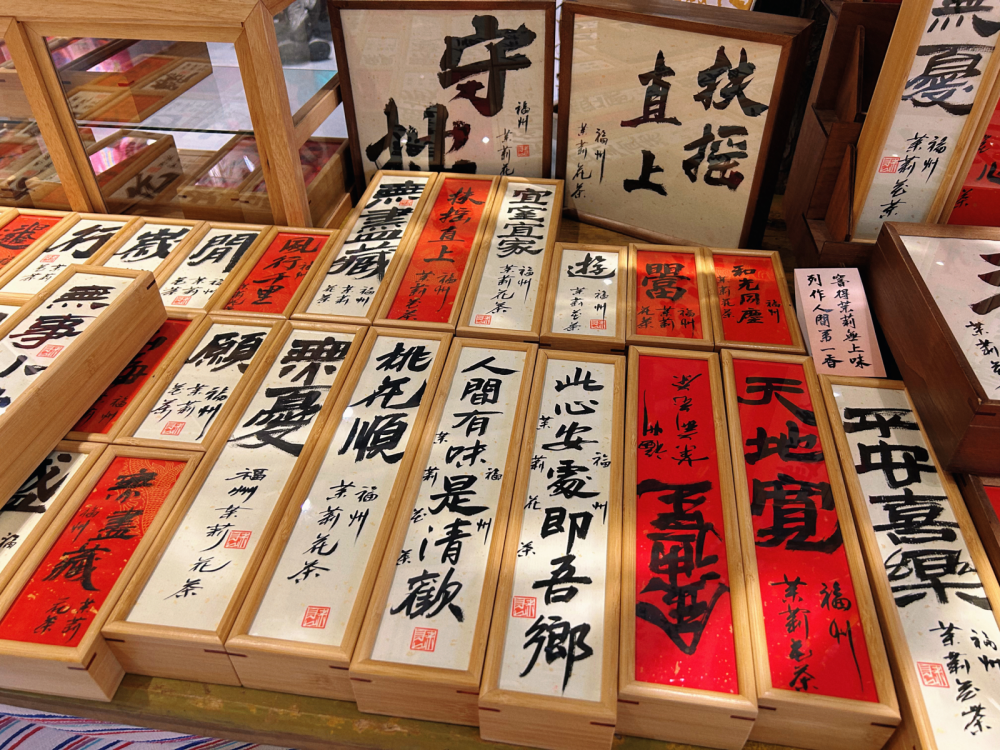 守拙
福州
茉莉花茶
扶摇
直上
福州
茉莉花茶
無憂
福州
茉莉花茶
行
嵗
閒
風行
福州
茉莉花茶
無盡藏
福州
茉莉花茶
扶摇直上
福州
茉莉花茶
宜室宜家
福州
茉莉花茶
遊
福州
茉莉花茶
福州
茉莉花茶
和光同塵
福州
茉莉花茶
窨得茉莉無上味
列作人間第一香
無事
願
福州
茉莉花茶
無盡藏
福州
茉莉花茶
無憂
福州
茉莉花茶
桃花順
福州
茉莉花茶
人間有味是清歡
福州
茉莉花茶
此心安處即吾鄉
福州
茉莉花茶
福州
茉莉花茶
天地寬
福州
茉莉花茶
平安喜樂
福州
茉莉花茶